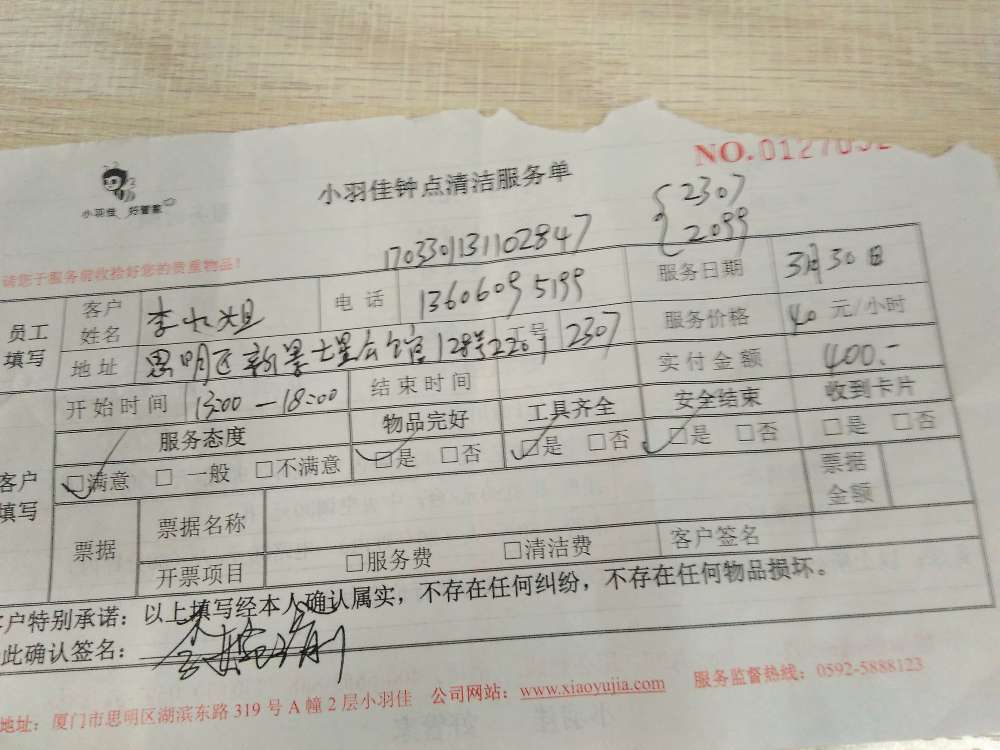 NO.0127052
小羽佳 好管家
小羽佳钟点清洁服务单
2307
2099
170330131102847
请您于服务前收拾好您的贵重物品！
员工填写 客户姓名 李大姐 电话 13606095199 服务日期 3月30日
地址 思明区新景七星公馆128号220号 工号 2307 服务价格 40 元/小时
开始时间 13:00—18:00 结束时间 实付金额 400.-
客户填写 服务态度 物品完好 工具齐全 安全结束 收到卡片
☑满意 □一般 □不满意 ☑是 □否 ☑是 □否 ☑是 □否 □是 □否
票据 票据名称 票据金额
开票项目 □服务费 □清洁费 客户签名
客户特别承诺：以上填写经本人确认属实，不存在任何纠纷，不存在任何物品损坏。
此确认签名：
地址：厦门市思明区湖滨东路 319 号 A 幢 2 层小羽佳 公司网站：www.xiaoyujia.com 服务监督热线：0592-5888123